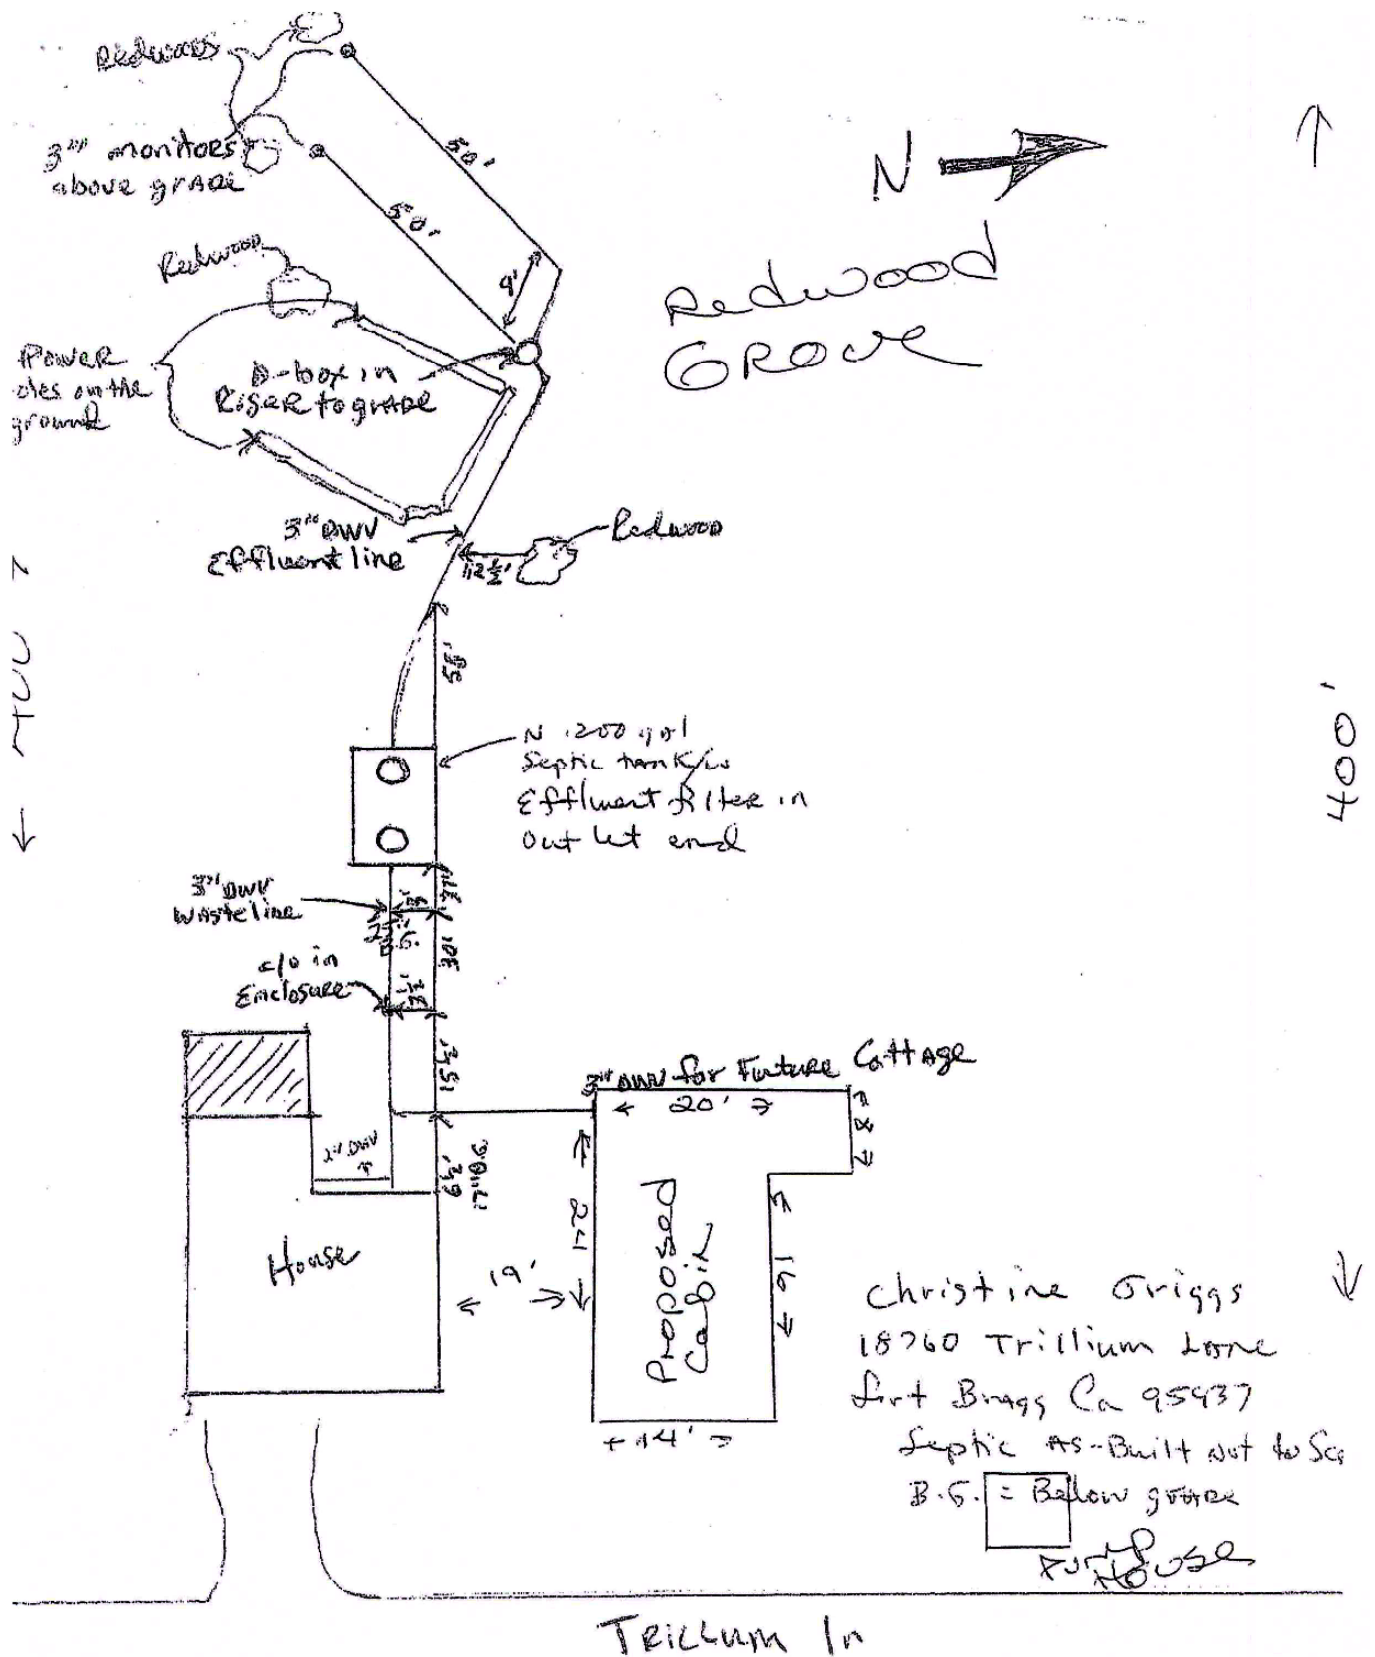 Redwoods
3" monitors
above grade
50'
50'
N
Redwood
Grove
Redwood
4'
Power
oles on the
ground
D-box in
Riser to grade
3" DWV
Effluent line
Redwood
12½'
58'
400'
400'
N 1200 gal
Septic tank/w
Effluent filter in
Outlet end
3" DWV
Wasteline
B.G.
30'
c/o in
Enclosure
3" DWV for Future Cottage
20'
8'
2" DWV
B.G.
24
16'
House
19'
Proposed
Cabin
14'
Christine Griggs
18760 Trillium Lane
Fort Bragg Ca 95437
Septic As-Built Not to Sca
B.G. = Below grade
Pump
House
Trillum Ln